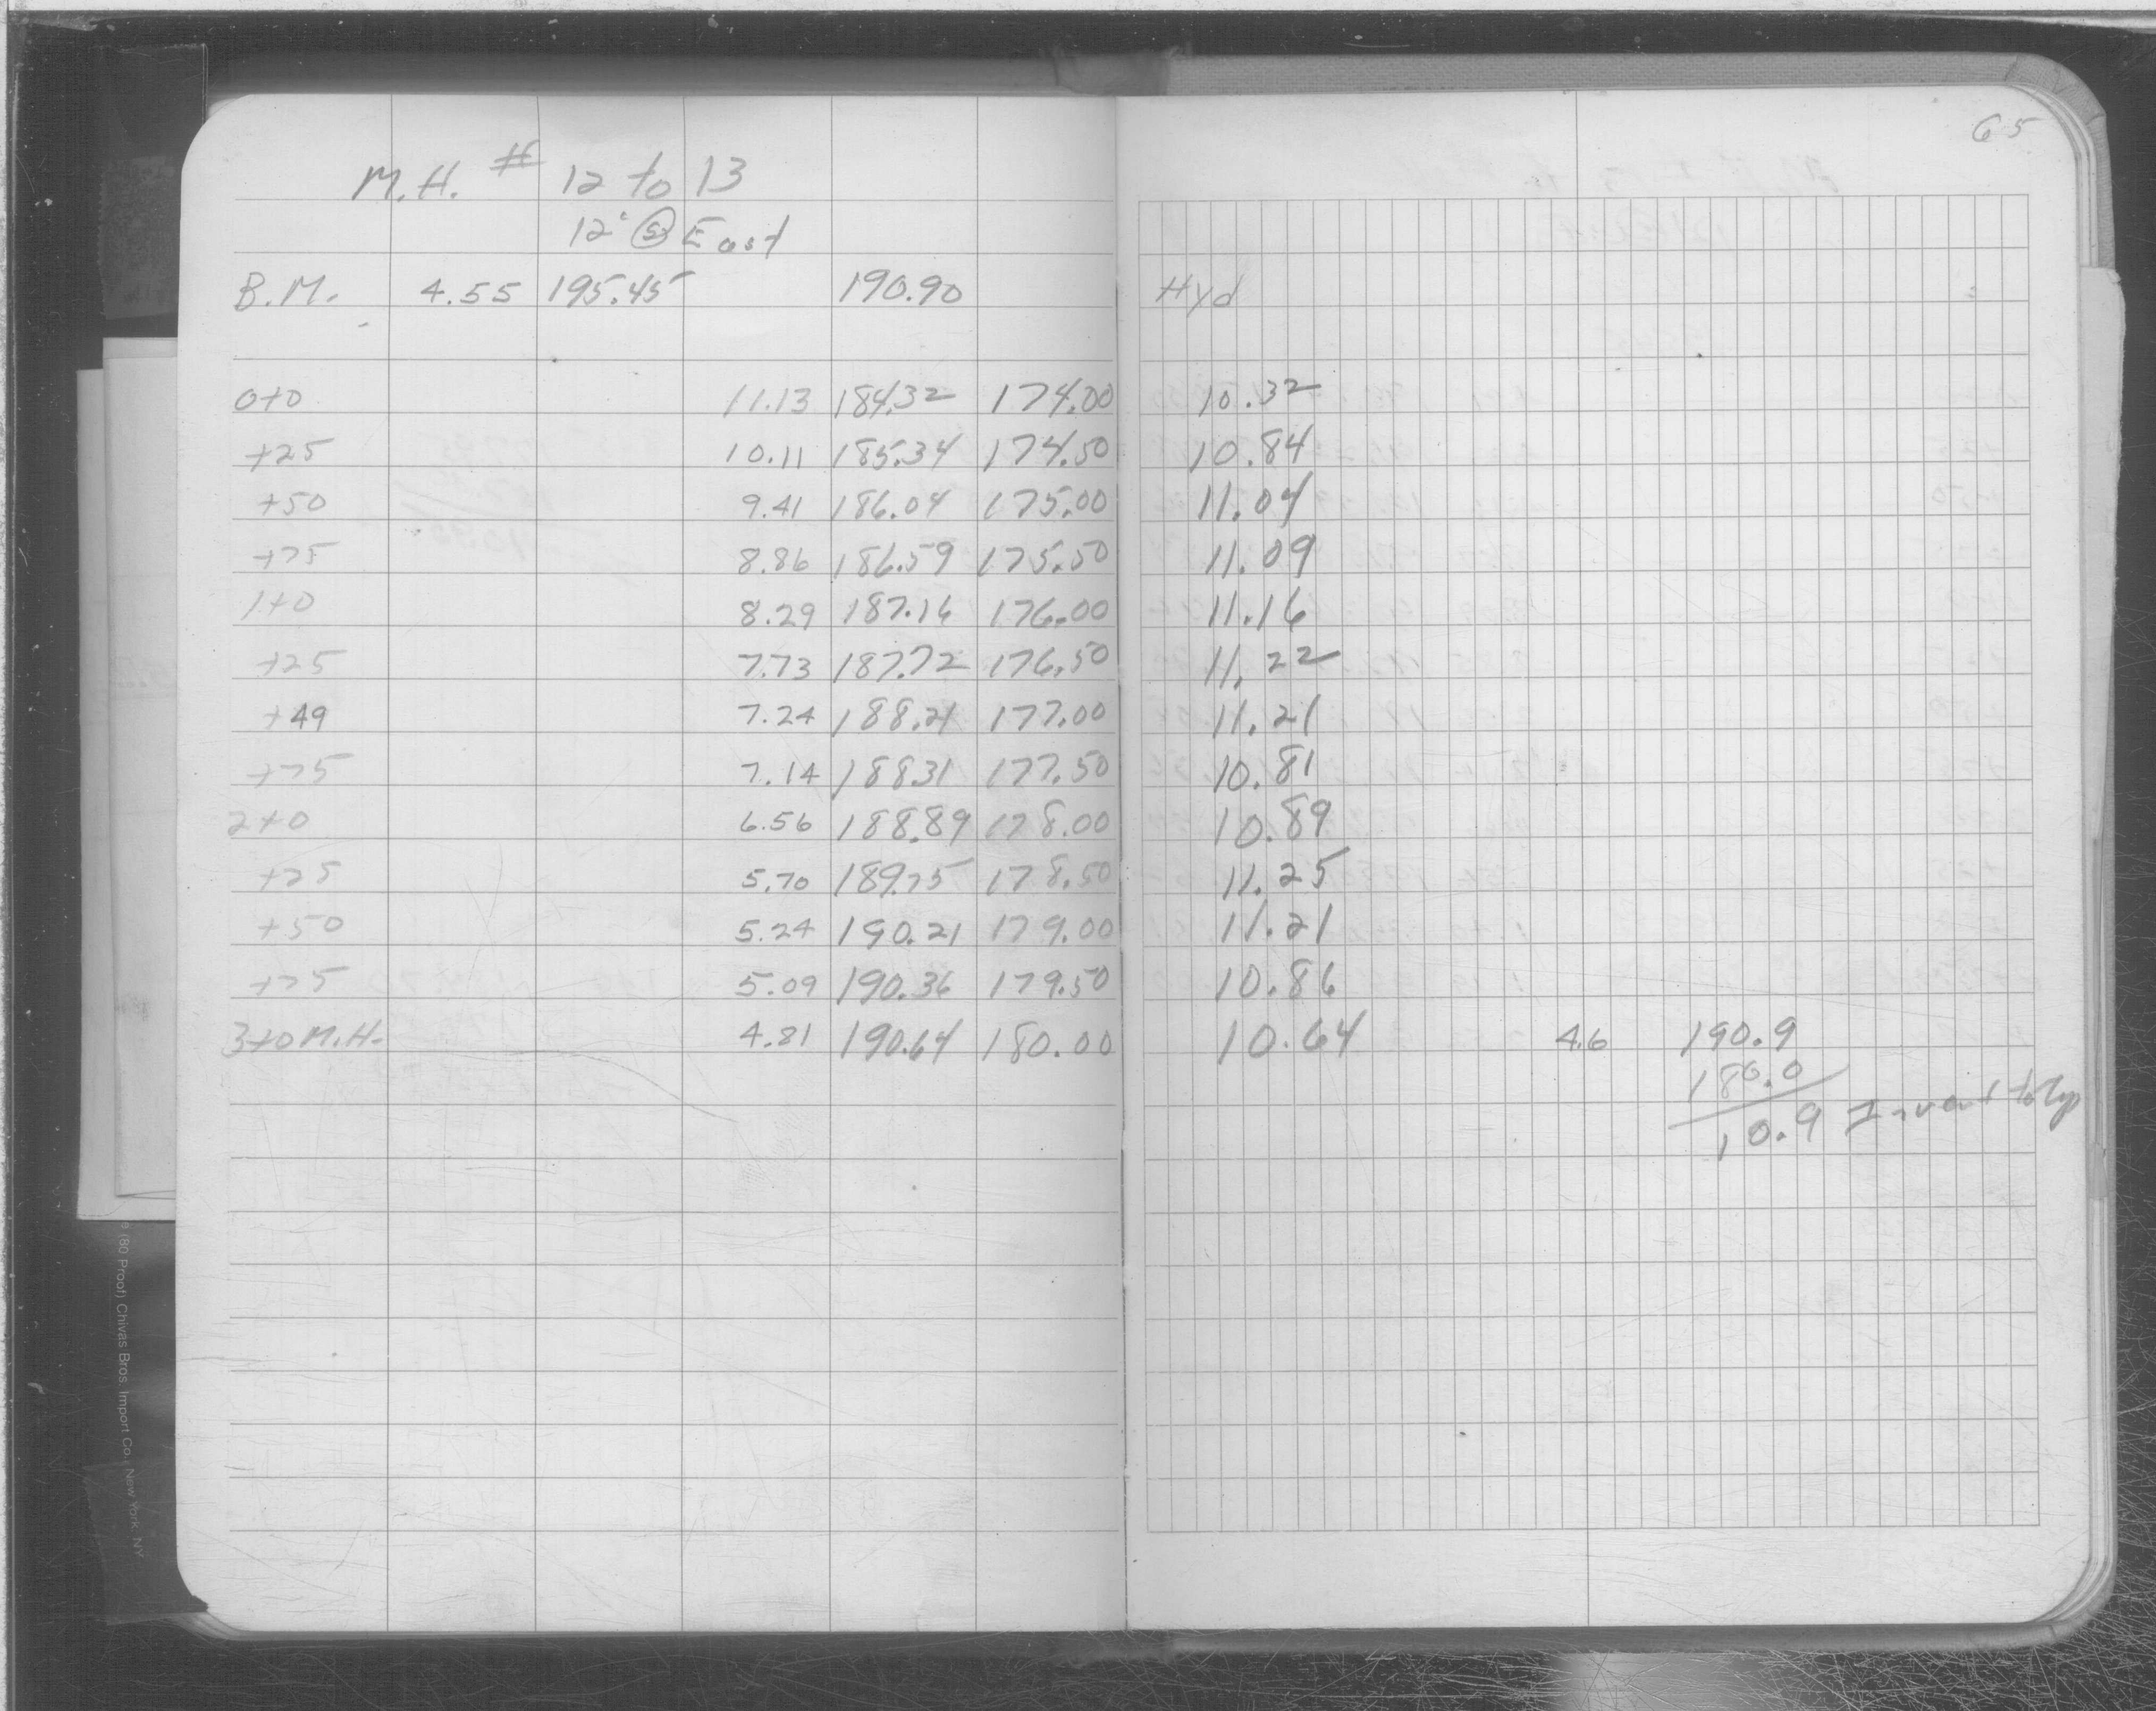 65
M.H. # 12 to 13
12" @ East
B.M. 4.55 195.45 190.90 Hyd
0+0 11.13 184.32 174.00 10.32
+25 10.11 185.34 174.50 10.84
+50 9.41 186.04 175.00 11.04
+75 8.86 186.59 175.50 11.09
1+0 8.29 187.16 176.00 11.16
+25 7.73 187.72 176.50 11.22
+49 7.24 188.21 177.00 11.21
+75 7.14 188.31 177.50 10.81
2+0 6.56 188.89 178.00 10.89
+25 5.70 189.75 178.50 11.25
+50 5.24 190.21 179.00 11.21
+75 5.09 190.36 179.50 10.86
3+0 M.H. 4.81 190.64 180.00 10.64 4.6 190.9
180.0
10.9 Invert to
(80 Proof) Chivas Bros. Import Co., New York, NY